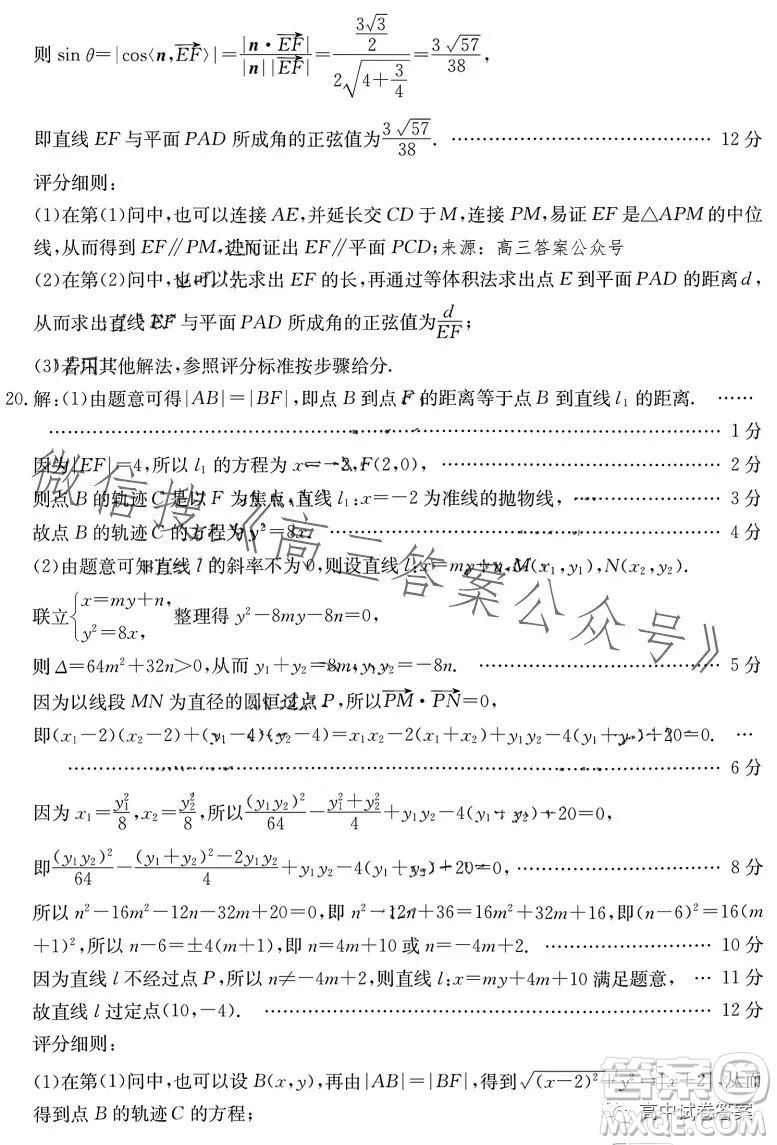 则 sin θ=|cos⟨n,EF⟩|=|n·EF|/|n||EF|=(3√3/2)/(2√(4+3/4))=3√57/38,
即直线 EF 与平面 PAD 所成角的正弦值为3√57/38. …………………………………… 12 分
评分细则:
(1)在第(1)问中,也可以连接 AE,并延长交 CD 于 M,连接 PM,易证 EF 是△APM 的中位
线,从而得到 EF∥PM,进而证出 EF∥平面 PCD;来源:高三答案公众号
(2)在第(2)问中,也可以先求出 EF 的长,再通过等体积法求出点 E 到平面 PAD 的距离 d,
从而求出直线 EF 与平面 PAD 所成角的正弦值为d/EF;
(3)若用其他解法,参照评分标准按步骤给分.
20. 解:(1)由题意可得|AB|=|BF|,即点 B 到点 F 的距离等于点 B 到直线 l₁ 的距离. ……
…………………………………………………………………………………… 1 分
因为|EF|=4,所以 l₁ 的方程为 x=-2,F(2,0), …………………………………… 2 分
则点 B 的轨迹 C 是以 F 为焦点,直线 l₁:x=-2 为准线的抛物线, ………………… 3 分
故点 B 的轨迹 C 的方程为 y²=8x. …………………………………………………… 4 分
(2)由题意可知直线 l 的斜率不为 0,则设直线 l:x=my+n,M(x₁,y₁),N(x₂,y₂).
联立{x=my+n, y²=8x, 整理得 y²-8my-8n=0,
则 Δ=64m²+32n>0,从而 y₁+y₂=8m,y₁y₂=-8n. ………………………………… 5 分
因为以线段 MN 为直径的圆恒过点 P,所以PM·PN=0,
即(x₁-2)(x₂-2)+(y₁-4)(y₂-4)=x₁x₂-2(x₁+x₂)+y₁y₂-4(y₁+y₂)+20=0. …
…………………………………………………………………………………… 6 分
因为 x₁=y₁²/8,x₂=y₂²/8,所以(y₁y₂)²/64-(y₁²+y₂²)/4+y₁y₂-4(y₁+y₂)+20=0,
即(y₁y₂)²/64-((y₁+y₂)²-2y₁y₂)/4+y₁y₂-4(y₁+y₂)+20=0, ………………………… 8 分
所以 n²-16m²-12n-32m+20=0,即 n²-12n+36=16m²+32m+16,即(n-6)²=16(m
+1)²,所以 n-6=±4(m+1),即 n=4m+10 或 n=-4m+2. …………………… 10 分
因为直线 l 不经过点 P,所以 n≠-4m+2,则直线 l:x=my+4m+10 满足题意, … 11 分
故直线 l 过定点(10,-4). ………………………………………………………… 12 分
评分细则:
(1)在第(1)问中,也可以设 B(x,y),再由|AB|=|BF|,得到√((x-2)²+y²)=|x+2|,从而
得到点 B 的轨迹 C 的方程;
微信搜《高三答案公众号》
高中试卷答案
答案圈
MXQE.COM